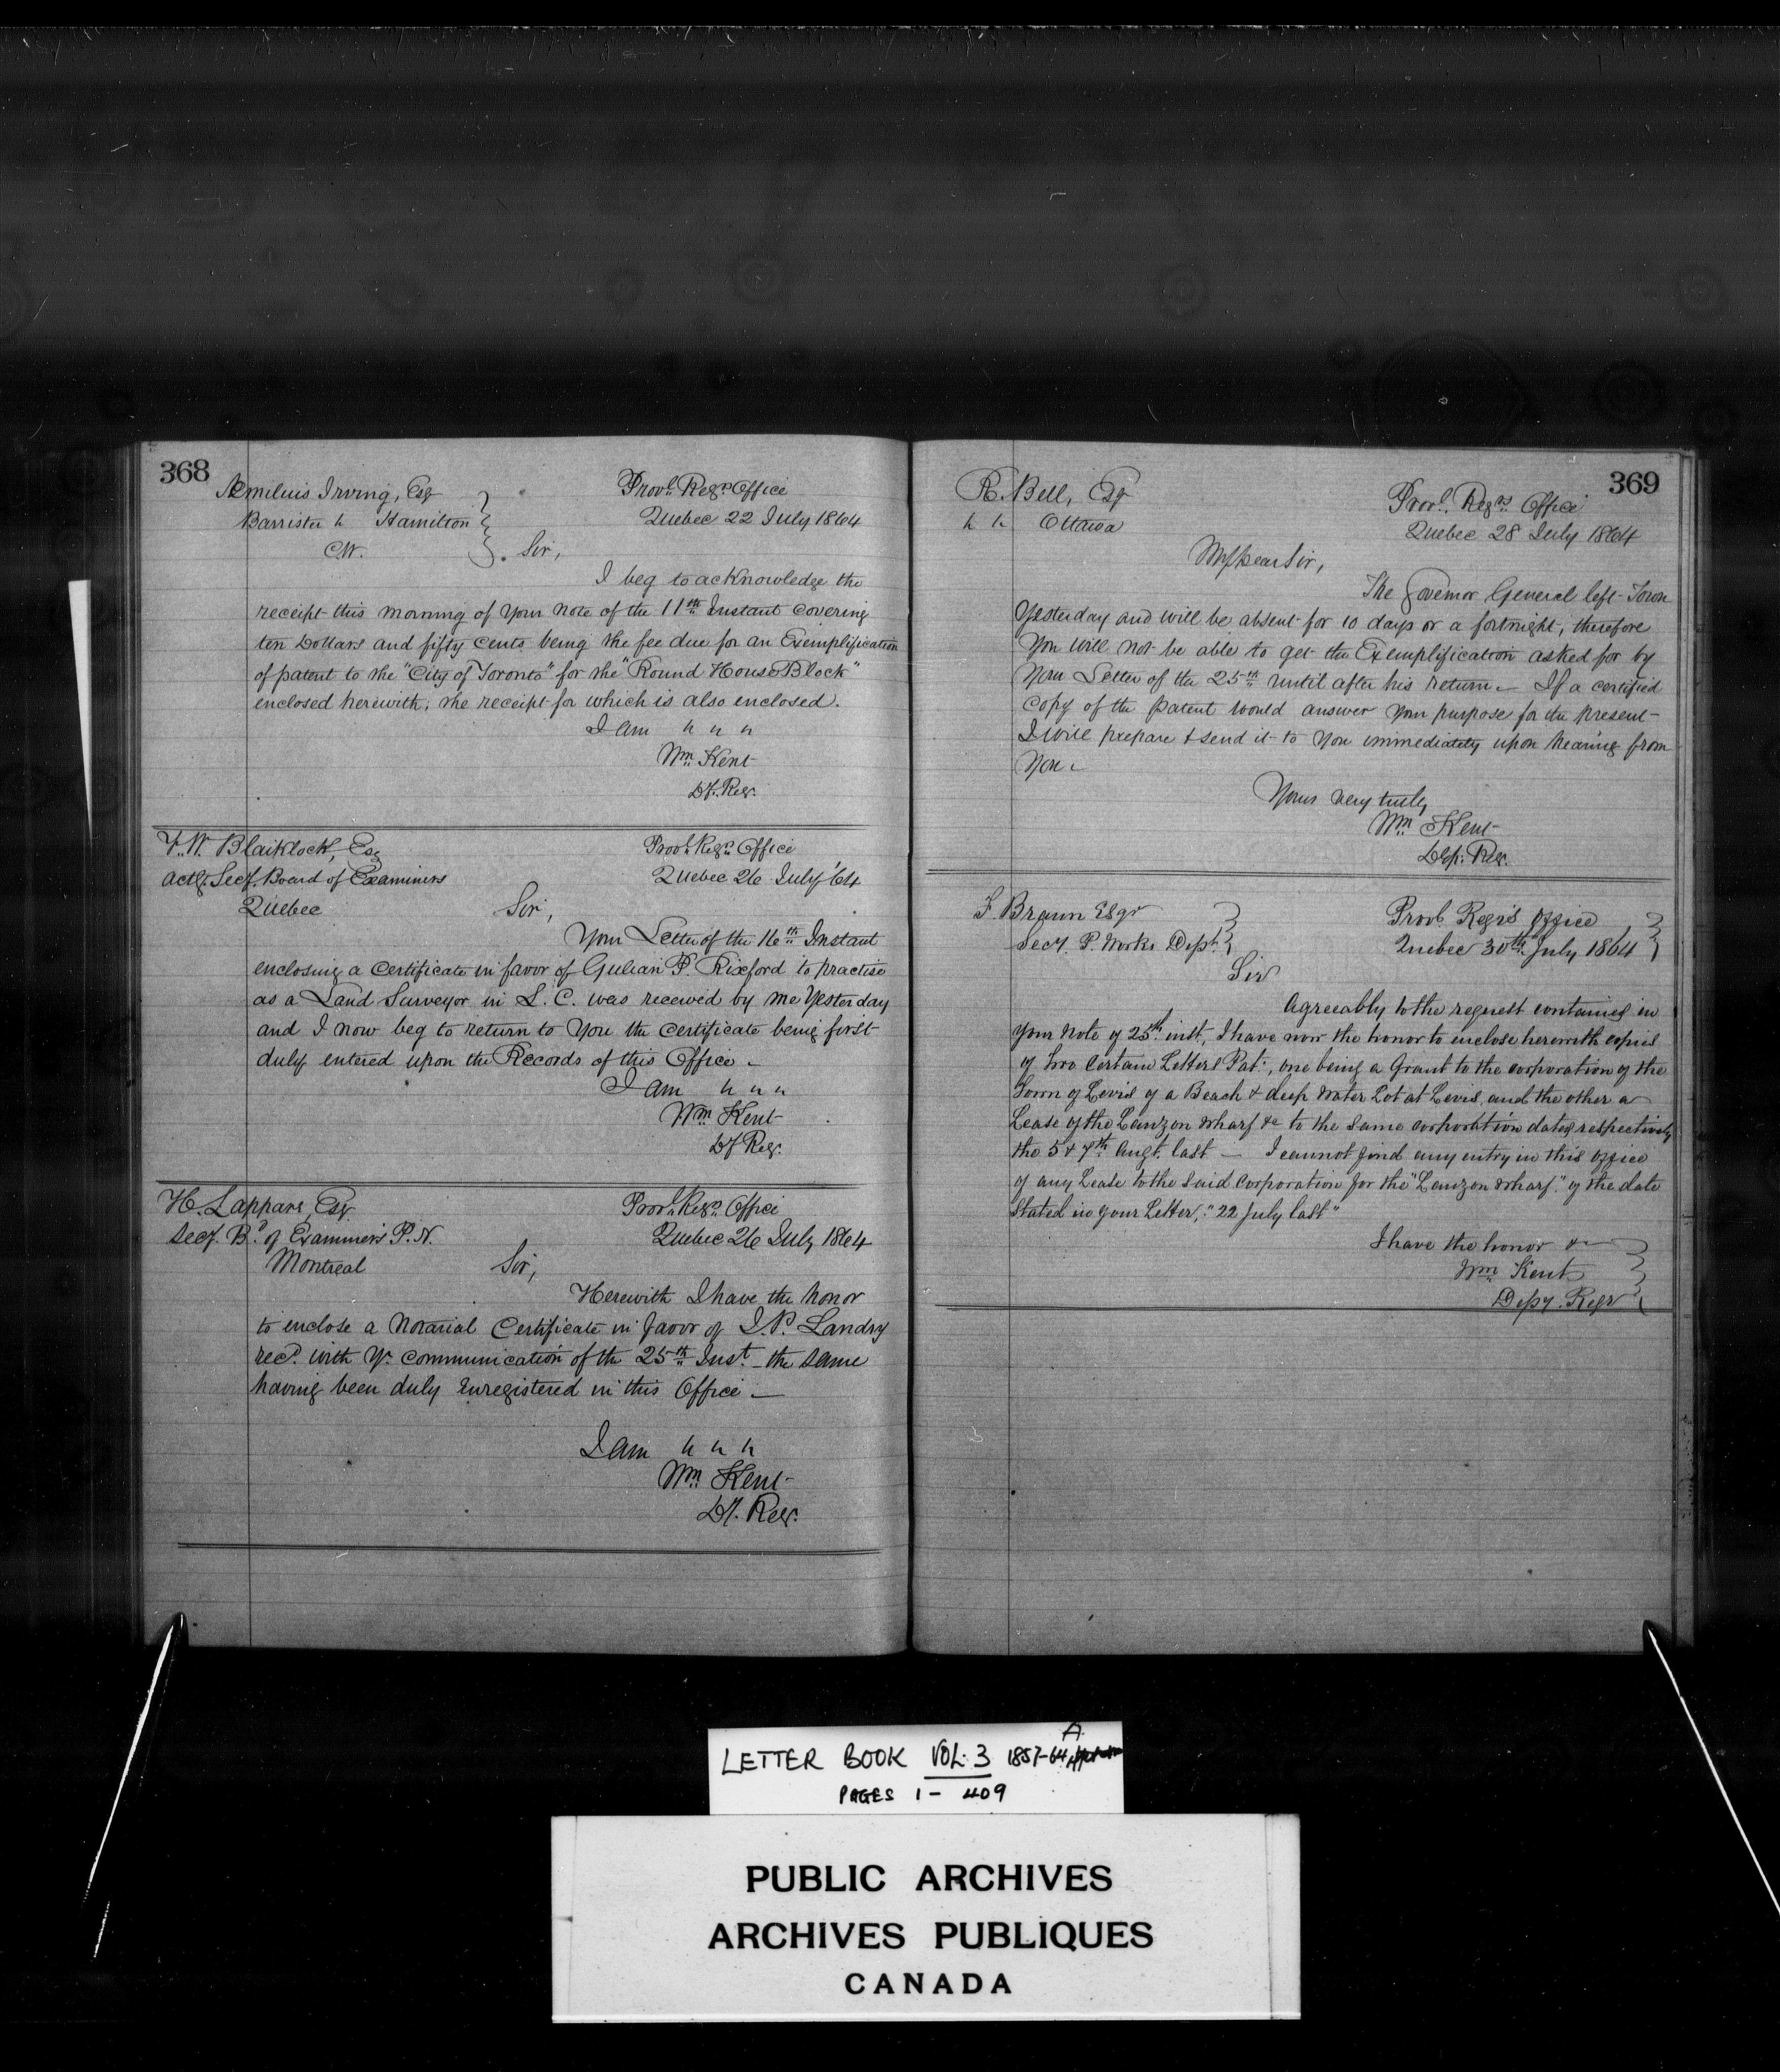 368
Aemilius Irving, Esq
Provl. Regrs. Office
Barrister &c Hamilton
Quebec 22 July 1864
C.W.
Sir,
I beg to acknowledge the
receipt this morning of your note of the 11th Instant covering
ten Dollars and fifty cents being the fee due for an Exemplification
of patent to the "City of Toronto" for the "Round House Block"
enclosed herewith; the receipt for which is also enclosed.
I am " " "
Wm. Kent
Dy. Reg.
F. W. Blaiklock, Esq
Provl. Regrs. Office
Actg. Secy. Board of Examiners
Quebec 26 July '64
Quebec
Sir,
Your Letter of the 16th Instant
enclosing a Certificate in favor of Gulian P. Rixford to practise
as a Land Surveyor in L. C. was received by me Yesterday
and I now beg to return to You the Certificate being first
duly entered upon the Records of this Office —
I am " " "
Wm. Kent
Dy Reg.
H. Lappare Esq.
Provl. Regrs. Office
Secy. Bd. of Examiners P. N.
Quebec 26 July 1864
Montreal
Sir,
Herewith I have the honor
to enclose a Notarial Certificate in favor of J. P. Landry
recd. with Yr. communication of the 25th Inst. — the same
having been duly Enregistered in this Office —
I am " " "
Wm. Kent
Dy. Reg.
369
R. Bell, Esq
Provl. Regrs. Office
" " Ottawa
Quebec 28 July 1864
My Dear Sir,
The Governor General left Town
Yesterday and will be absent for 10 days or a fortnight, therefore
You will not be able to get the Exemplification asked for by
Your Letter of the 25th until after his return — If a certified
copy of the patent would answer your purpose for the present
I will prepare & send it to You immediately upon hearing from
You —
Yours very truly
Wm Kent
Dep. Reg.
F. Braun Esqr
Provl. Regr's Office
Secy. P. Works Dept.
Quebec 30th July 1864
Sir
Agreeably to the request contained in
your note of 25th inst, I have now the honor to enclose herewith copies
of two certain Letters Pat:, one being a Grant to the corporation of the
Town of Levis of a Beach & deep water Lot at Levis, and the other a
Lease of the Lauzon wharf &c to the same corporation dated respectively
the 5 & 7th Augt. last — I cannot find any entry in this office
of any Lease to the said Corporation for the "Lauzon wharf." of the date
stated in your Letter, "22 July last"
I have the honor &c
Wm. Kent
Depy. Regr
LETTER BOOK VOL. 3 1857-64 A
PAGES 1 - 409
PUBLIC ARCHIVES
ARCHIVES PUBLIQUES
CANADA